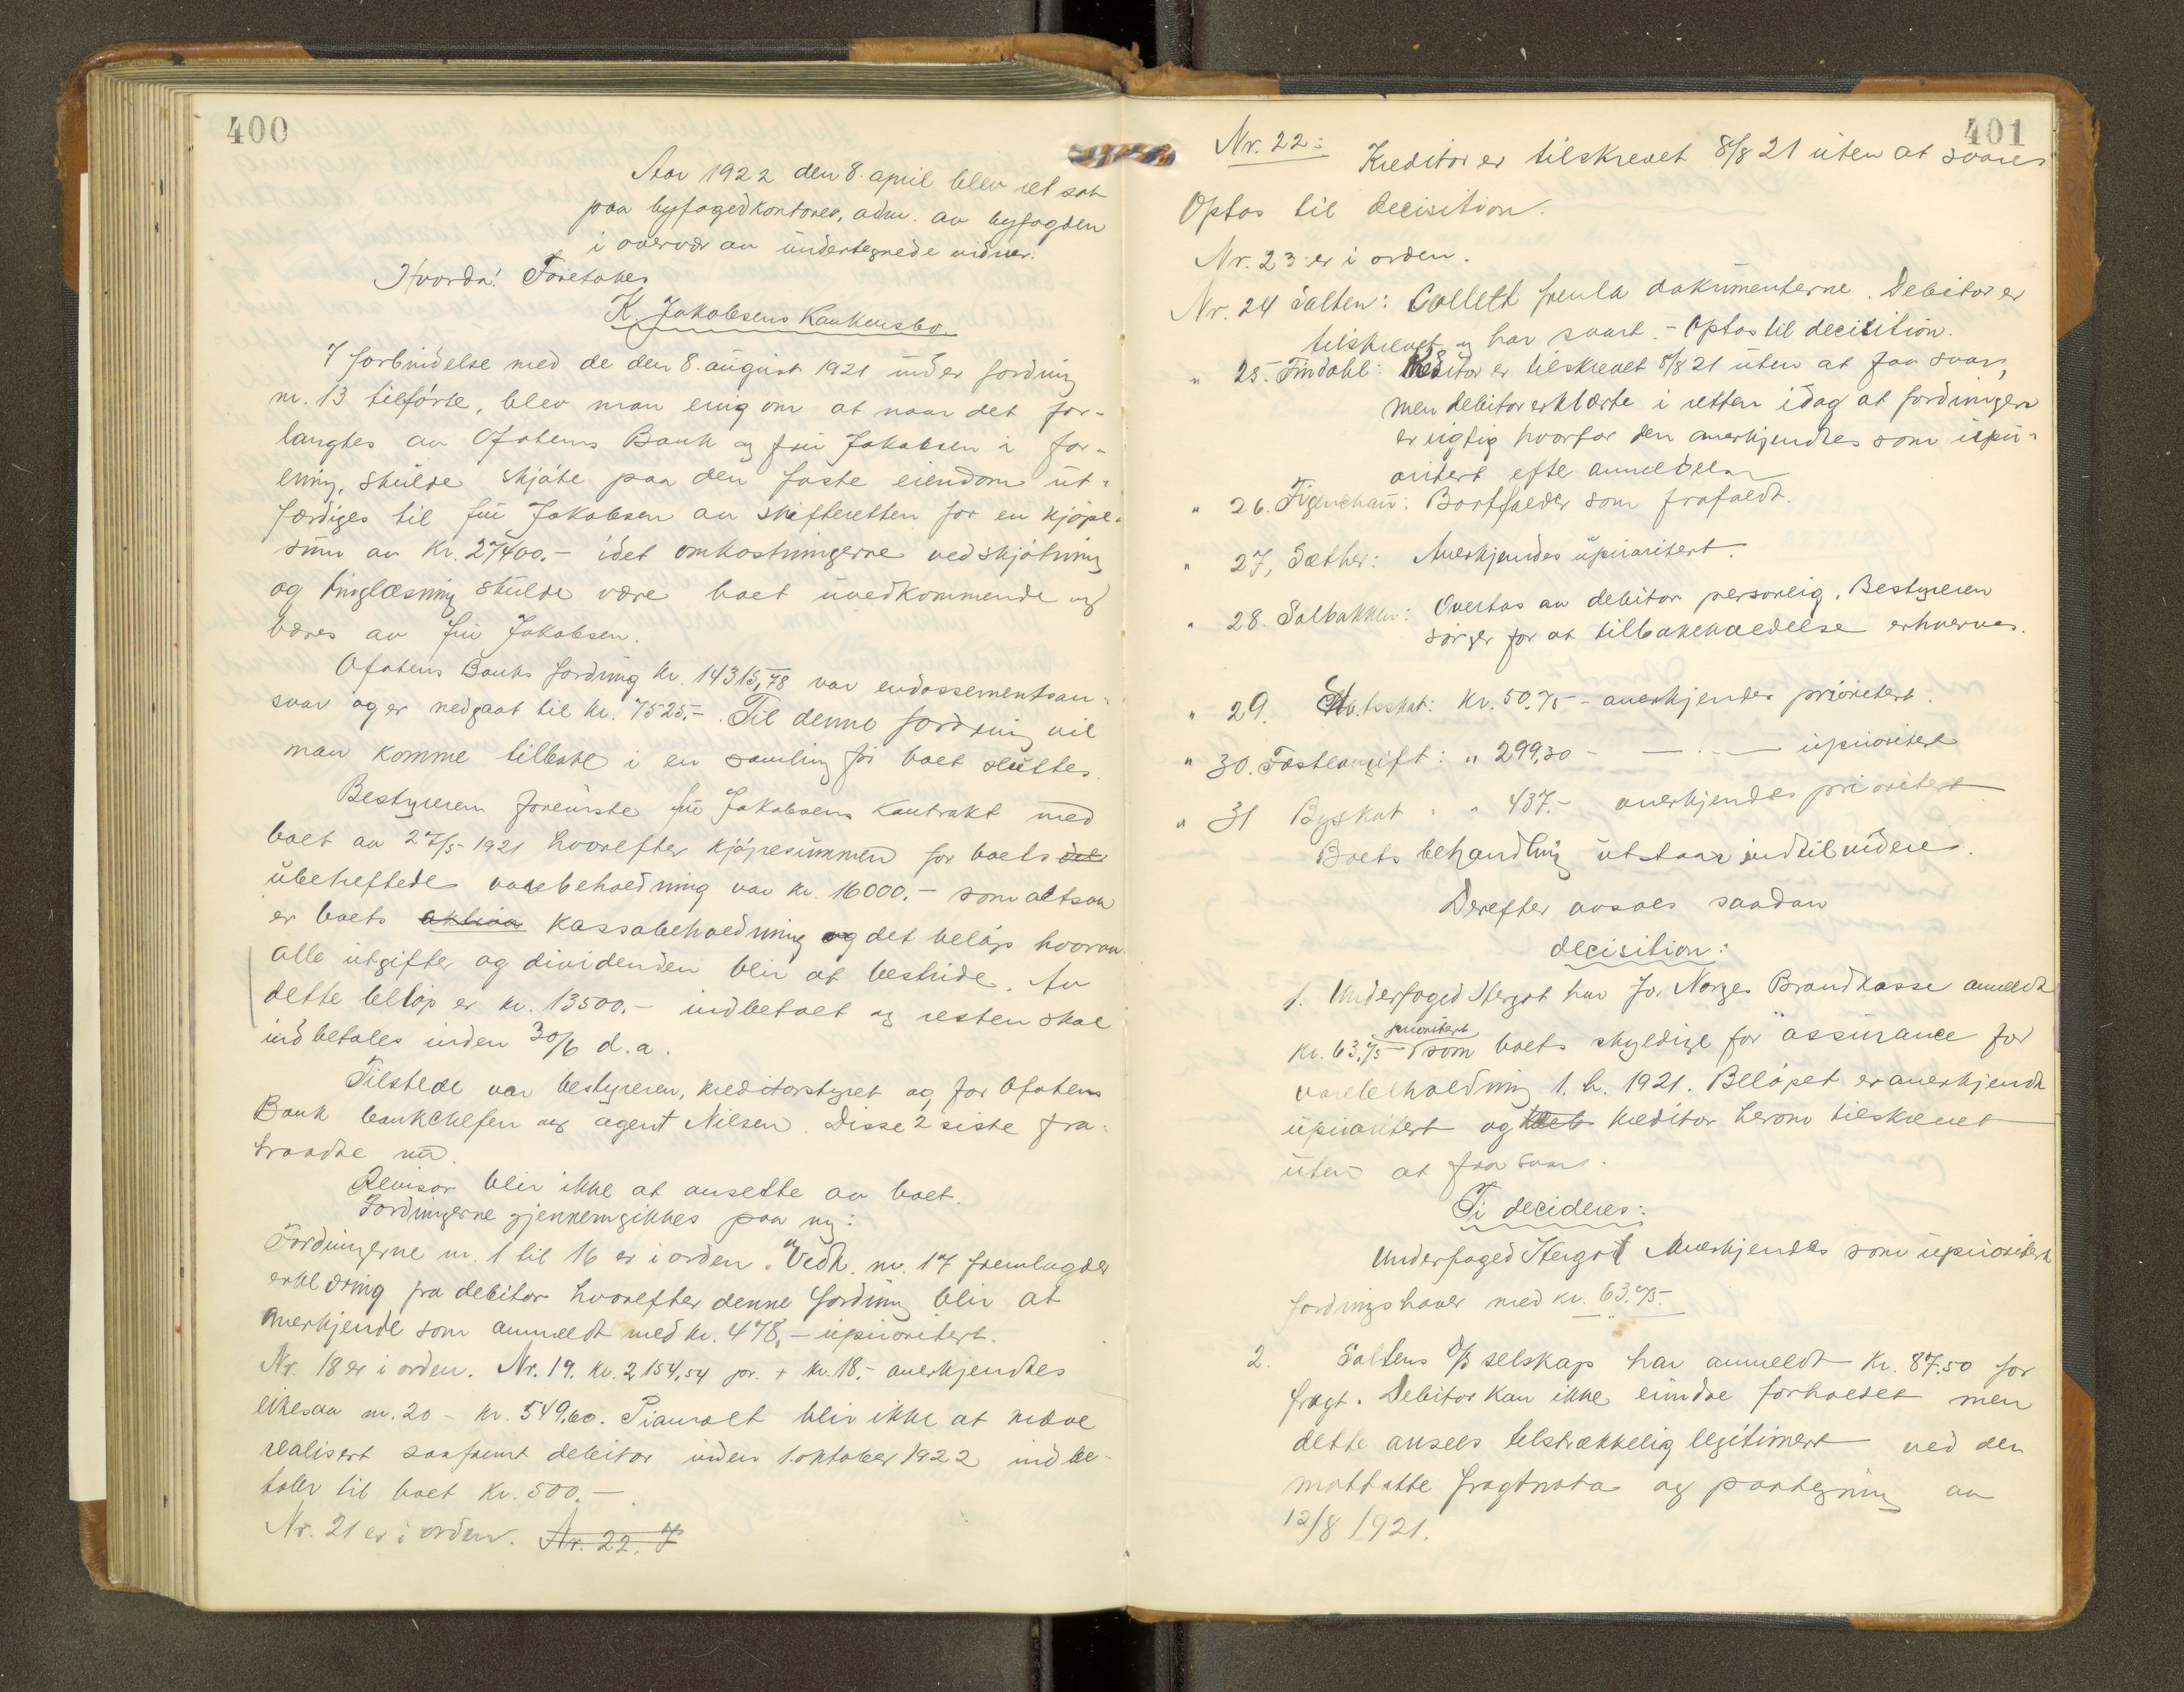 400
Aar 1922 den 8. april blev ret sat
paa byfogedkontoret, adm. av byfogden
i overvær av undertegnede vidner.
Hvorda! Foretokes
K. Jakobsens Konkursbo
I forbindelse med de den 8. august 1921 under fordring
nr. 13 tilførte, blev man enig om at naar det for-
langtes av Ofotens Bank og fru Jakobsen i for-
ening, skulde skjøte paa den faste eiendom ut-
færdiges til fru Jakobsen av skifteretten for en kjøpe-
sum av Kr. 27400.- idet omkostningerne ved skjøtning
og tinglæsning skulde være boet uvedkommende og
bæres av fru Jakobsen.
Ofotens Banks fordring kr. 14315,78 var endossementsan-
svar og er nedgaat til kr. 7525.-. Til denne fordring vil
man komme tilbake i en samling før boet sluttes.
Bestyreren foreviste fru Jakobsens kontrakt med
boet av 27/5-1921 hvorefter kjøpesummen for boets
ubeheftede varebeholdning var kr. 16000.- som altsaa
er boets aktiva kassabeholdning og det beløp hvorav
alle utgifter og dividenden blir at bestride. Av
dette beløp er kr. 13500.- indbetalt og resten skal
indbetales inden 30/6 d.a.
Tilstede var bestyreren, kreditorstyret og for Ofotens
Bank bankchefen og agent Nilsen. Disse 2 siste fra-
traadte nu.
Revisor blir ikke at ansette av boet.
Fordringerne gjennemgikkes paa ny:
Fordringerne nr. 1 til 16 er i orden. Vedk. nr. 17 fremlagdes
erklæring fra debitor hvorefter denne fordring blir at
anerkjende som anmeldt med kr. 478,- uprioritert.
Nr. 18 er i orden. Nr. 19. kr. 2154,54 pr. + kr. 18.- anerkjendtes
likesaa nr. 20 - kr. 549,60. Pianoet blir ikke at
realisert saafremt debitor inden 1. oktober 1922 indbe-
taler til boet Kr. 500.-
Nr. 21 er i orden. Nr. 22. I
401
Nr. 22: Kreditor er tilskrevet 8/8 21 uten at svares
Optas til decisition.
Nr. 23 er i orden.
Nr. 24 Salten: Collett freml. dokumenterne. Debitor er
tilskrevet og har svart. - Optas til decisition.
" 25. Findahl: Kreditor er tilskrevet 8/8 21 uten at faa svar,
men debitor erklærte i retten idag at fordringen
er rigtig hvorfor den anerkjendtes som upri-
oritert efter anmeldelsen
" 26. Figenschau: Bortfalder som frafaldt.
" 27, Sæther: Anerkjendes uprioritert.
" 28. Solbakken: Overtas av debitor personlig. Bestyreren
sørger for at tilbakekaldelse erhverves.
" 29. Statsskat: Kr. 50.75 - anerkjendes prioritert.
" 30. Fasteavgift: " 299,30 - — . — uprioritert
" 31 Byskat: " 437.- anerkjendes prioritert
Boets behandling utstaar indtilvidere.
Derefter avsaes saadan
decisition:
1. Underfoged Hergot har for Norges Brandkasse anmeldt
kr. 63,75 prioritert som boets skyldige for assurance for
varebeholdning 1. h. 1921. Beløpet er anerkjendt
uprioritert og kreditor herom tilskrevet
uten at faa svar.
Ti decideres:
Underfoged Hergot Anerkjendes som uprioritert
fordringshaver med kr. 63.75.
2. Saltens D/S selskap har anmeldt Kr. 87.50 for
fragt. Debitor kan ikke erindre forholdet men
dette ansees tilstrækkelig legitimert ved den
mottatte fragtnota og paategning av
12/8 1921.